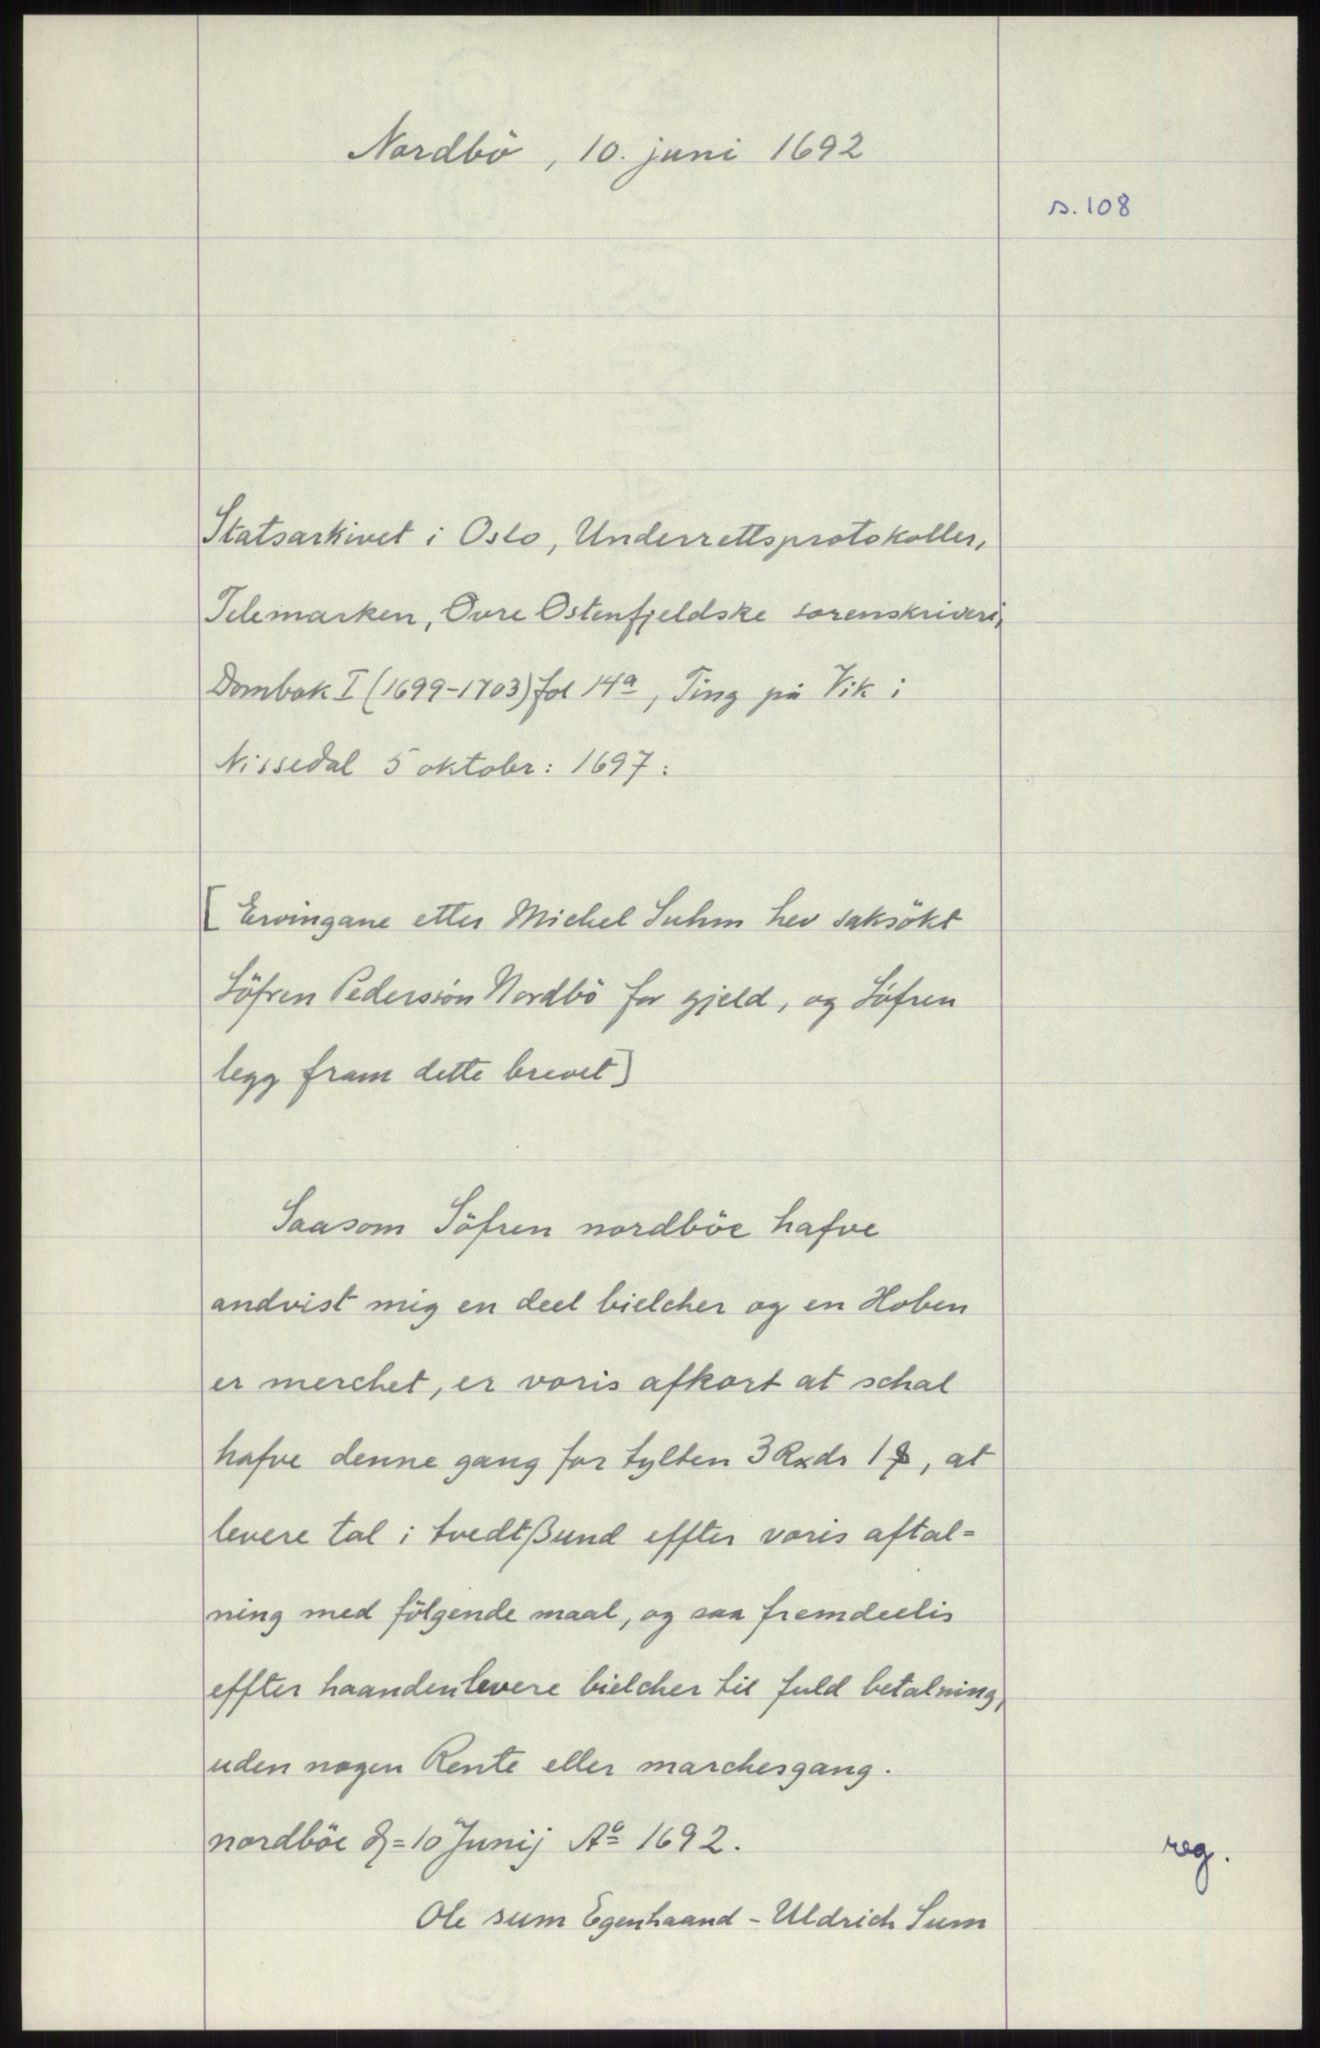 Nordbö, 10. juni 1692
s. 108
Statsarkivet i Oslo, Underrettsprotokoller,
Telemarken, Øvre Østenfjeldske sorenskriveri,
Dombok I (1699-1703) fol 14a, Ting på Vik i
Nissedal 5 oktobr: 1697:
[Ervingane etter Michel Suhm hev saksökt
Söfren Pederssön Nordbö for gjeld, og Söfren
legg fram dette brevet]
Saasom Söfren nordböe hafve
andvist mig en deel bielcher og en Hoben
er merchet, er voris afkort at schal
hafve denne gang for tylten 3 Rxdr 1 ꝑ, at
levere tal i tvedtßund effter voris aftal=
ning med fölgende maal, og saa fremdeelis
effter haanden levere bielcher til fuld betalning,
uden nogen Rente eller marchesgang.
nordböe d=10 Junij Ao 1692.
reg.
Ole sum Egenhaand - Uldrich Sum